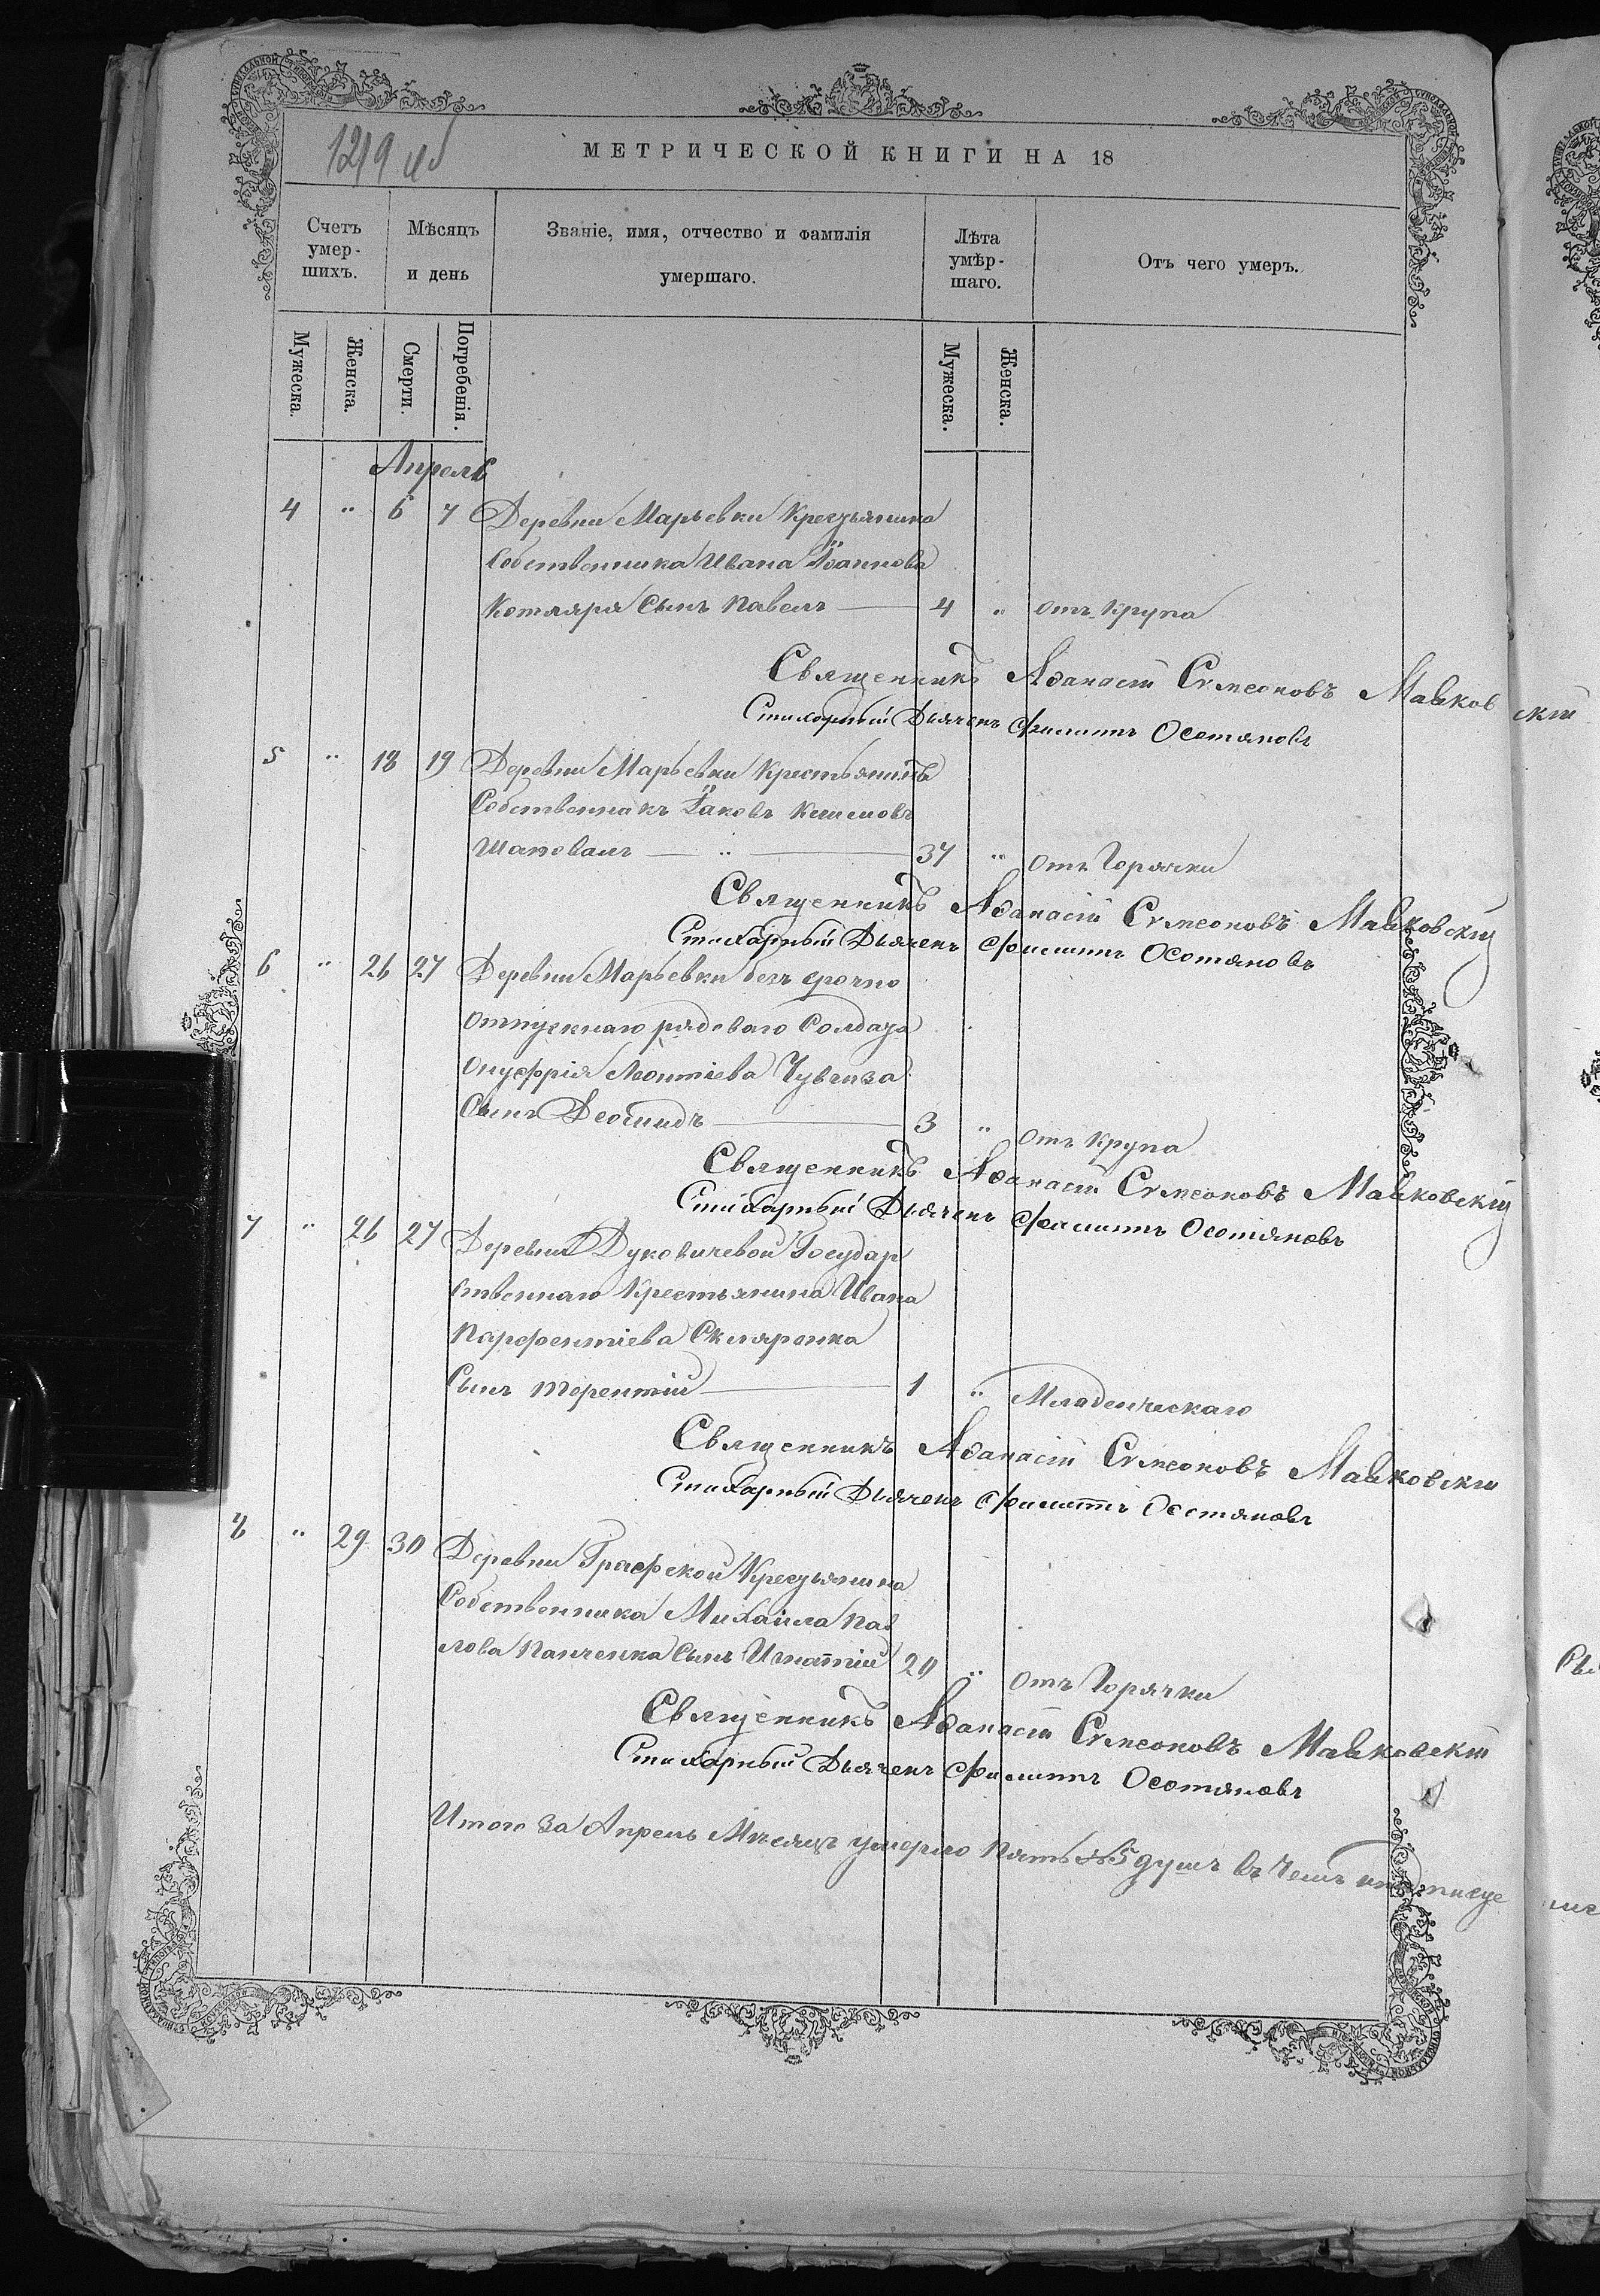 1219 об
МЕТРИЧЕСКОЙ КНИГИ НА 18
Счетъ умер-шихъ.
Мѣсяцъ и день
Званіе, имя, отчество и фамилія умершаго.
Лѣта умѣр-шаго.
Отъ чего умеръ.
Мужеска.
Женска.
Смерти.
Погребенія.
Мужеска.
Женска.
Апрель
4 " 6 7 Деревни Марьевки Крестьянина
Собственника Ивана Іоаннова
Котляра Сынъ Павелъ — 4 " отъ Крупа
Священникъ Аѳанасій Сѵмеоновъ Маиковскій
Стихарный Дьячекъ Филиппъ Осотяновъ
5 " 18 19 Деревни Марьевки Крестьянинъ
Собственникъ Іаковъ Климовъ
Шаповалъ — " — 37 " отъ Горячки
Священникъ Аѳанасій Сѵмеоновъ Маиковскій
Стихарный Дьячекъ Филиппъ Осотяновъ
6 " 26 27 Деревни Марьевки безъ срочно
отпускнаго рядоваго Солдата
Онуфрія Леонтіева
Сынъ Леонидъ — 3 " отъ Крупа
Священникъ Аѳанасій Сѵмеоновъ Маиковскій
Стихарный Дьячекъ Филиппъ Осотяновъ
7 " 26 27 Деревни Дуковичевой Государ
ственнаго Крестьянина Ивана
Парфентіева Скляренка
Сынъ Терентій — 1 " Младенческаго
Священникъ Аѳанасій Сѵмеоновъ Маиковскій
Стихарный Дьячекъ Филиппъ Осотяновъ
8 " 29 30 Деревни Графской Крестьянина
Собственника Михаила Пав
лова Панченка Сынъ Игнатій 20 " отъ Горячки
Священникъ Аѳанасій Сѵмеоновъ Маиковскій
Стихарный Дьячекъ Филиппъ Осотяновъ
Итого за Апрель Мѣсяцъ умерло Пять 5 душъ въ чемъ и подписуемся